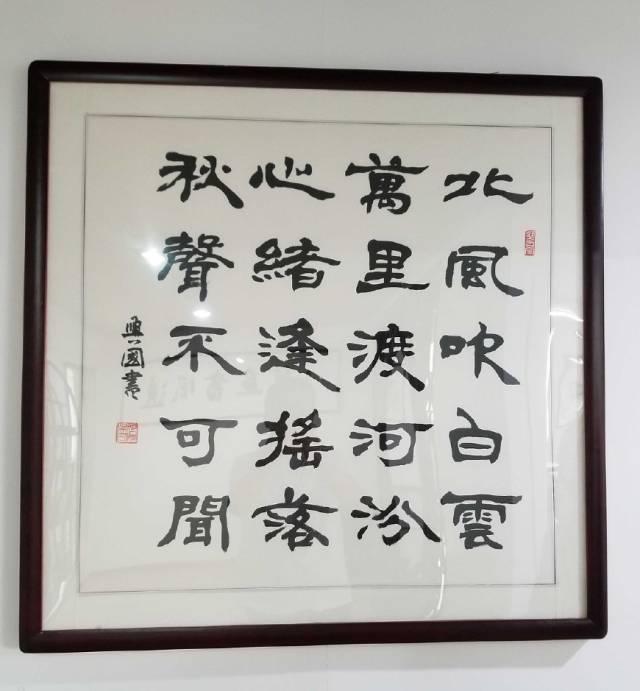 北風吹白雲
萬里渡河汾
心緒逢搖落
秋聲不可聞
興國書